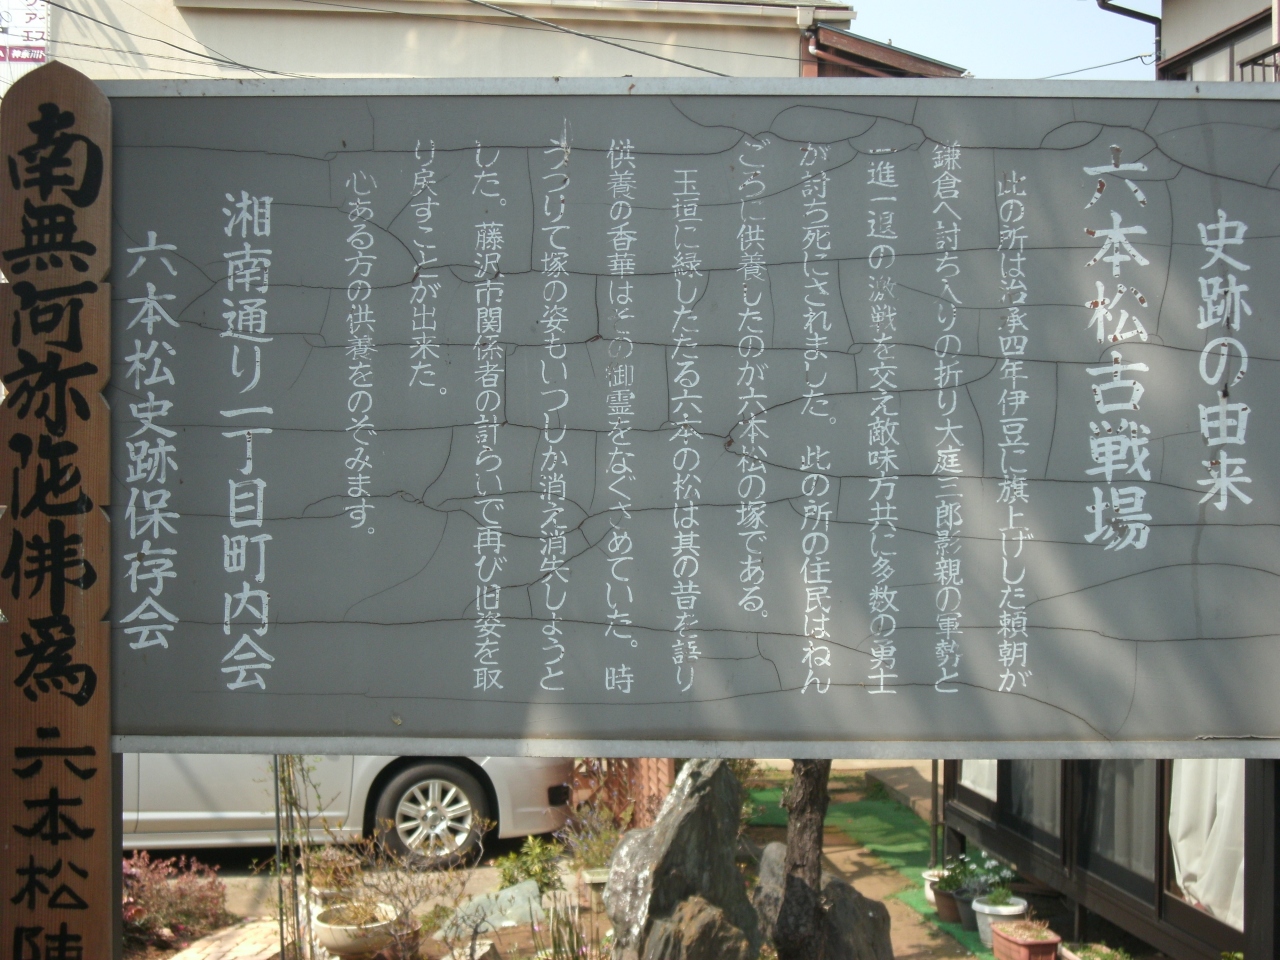 史跡の由来
六本松古戦場
此の所は治承四年伊豆に旗上げした頼朝が
鎌倉へ討ち入りの折り大庭三郎影親の軍勢と
一進一退の激戦を交え敵味方共に多数の勇士
が討ち死にされました。此の所の住民はねん
ごろに供養したのが六本松の塚である。
玉垣に緑したたる六本の松は其の昔を語り
供養の香華はその御霊をなぐさめていた。時
うつりて塚の姿もいつしか消え消失しようと
した。藤沢市関係者の計らいで再び旧姿を取
り戻すことが出来た。
心ある方の供養をのぞみます。
湘南通り一丁目町内会
六本松史跡保存会
南無阿弥陀佛為 六本松陣